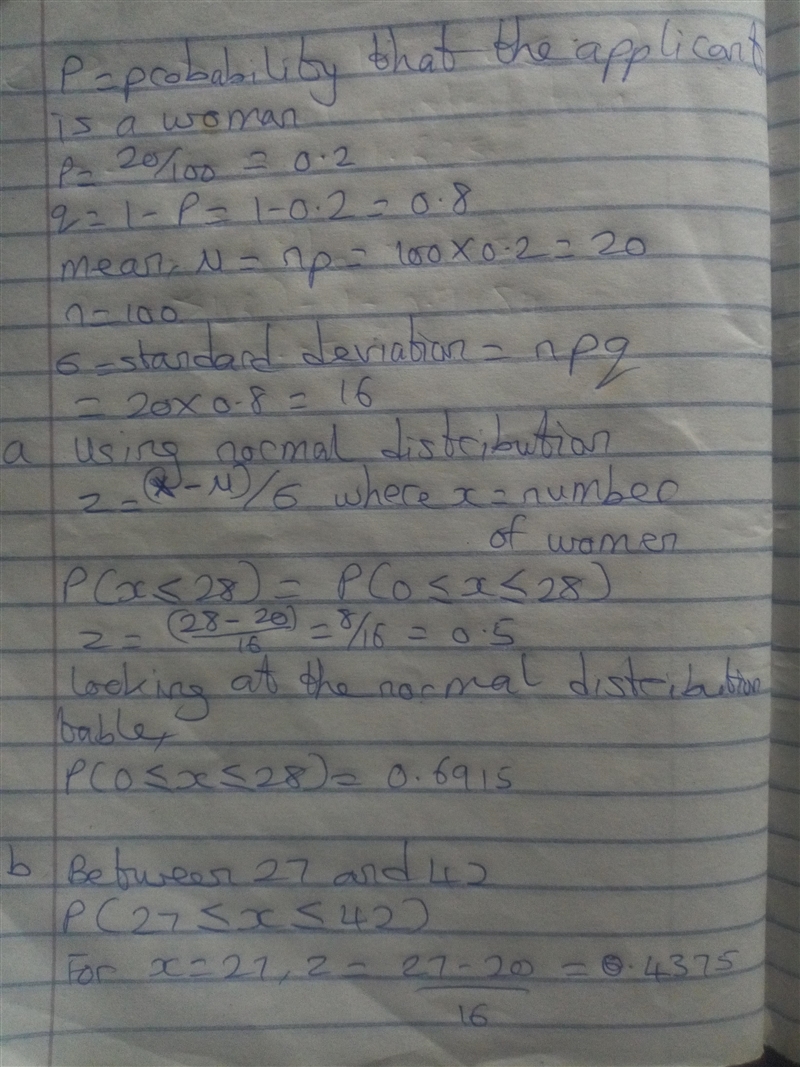 P = probability that the applicant
is a woman
P = 20/100 = 0.2
q = 1 - P = 1 - 0.2 = 0.8
mean, μ = np = 100 × 0.2 = 20
n = 100
σ = standard deviation = npq
= 20 × 0.8 = 16
a Using normal distribution
z = (x - μ)/σ where x = number
of women
P(x ≤ 28) = P(0 ≤ x ≤ 28)
z = (28 - 20)/16 = 8/16 = 0.5
looking at the normal distribution
table,
P(0 ≤ x ≤ 28) = 0.6915
b Between 27 and 42
P(27 ≤ x ≤ 42)
For x = 27, z = 27 - 20/16 = 0.4375